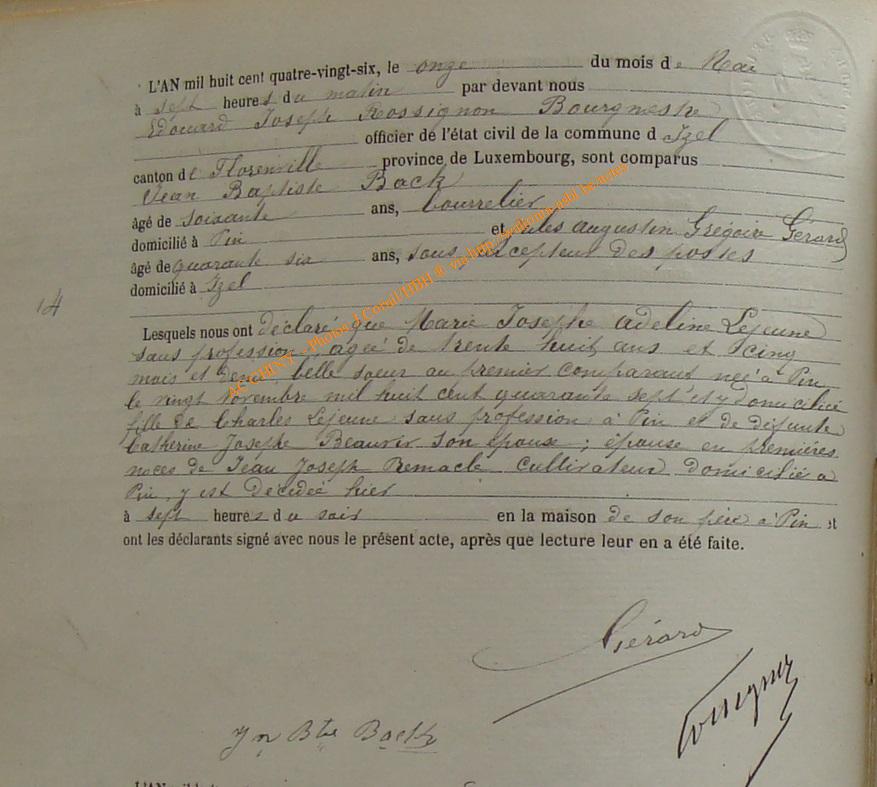 L'AN mil huit cent quatre-vingt-six, le onze du mois de Mai
à sept heures du matin par devant nous
Edouard Joseph Rossignon Bourgmestre
officier de l'état civil de la commune d Izel
canton de Florenville province de Luxembourg, sont comparus
Jean Baptiste Back
âgé de soixante ans, bourrelier
domicilié à Pin et Jules Augustin Grégoire Gérard
âgé de quarante six ans, sous percepteur des postes
domicilié à Izel
14
Lesquels nous ont déclaré que Marie Josephe Adeline Lejeune
sans profession, agée de trente huit ans et cinq
mois et demi, belle soeur au premier comparant née à Pin
le vingt novembre mil huit cent quarante sept et y domiciliée
fille de Charles Lejeune sans profession à Pin et de défunte
Catherine Josephe son épouse ; épouse en premières
noces de Jean Joseph Remacle cultivateur domicilié à
Pin, y est décédée hier
à sept heures du soir en la maison de son père à Pin et
ont les déclarants signé avec nous le présent acte, après que lecture leur en a été faite.
Gérard
Jn Bte Back
L'AN mil